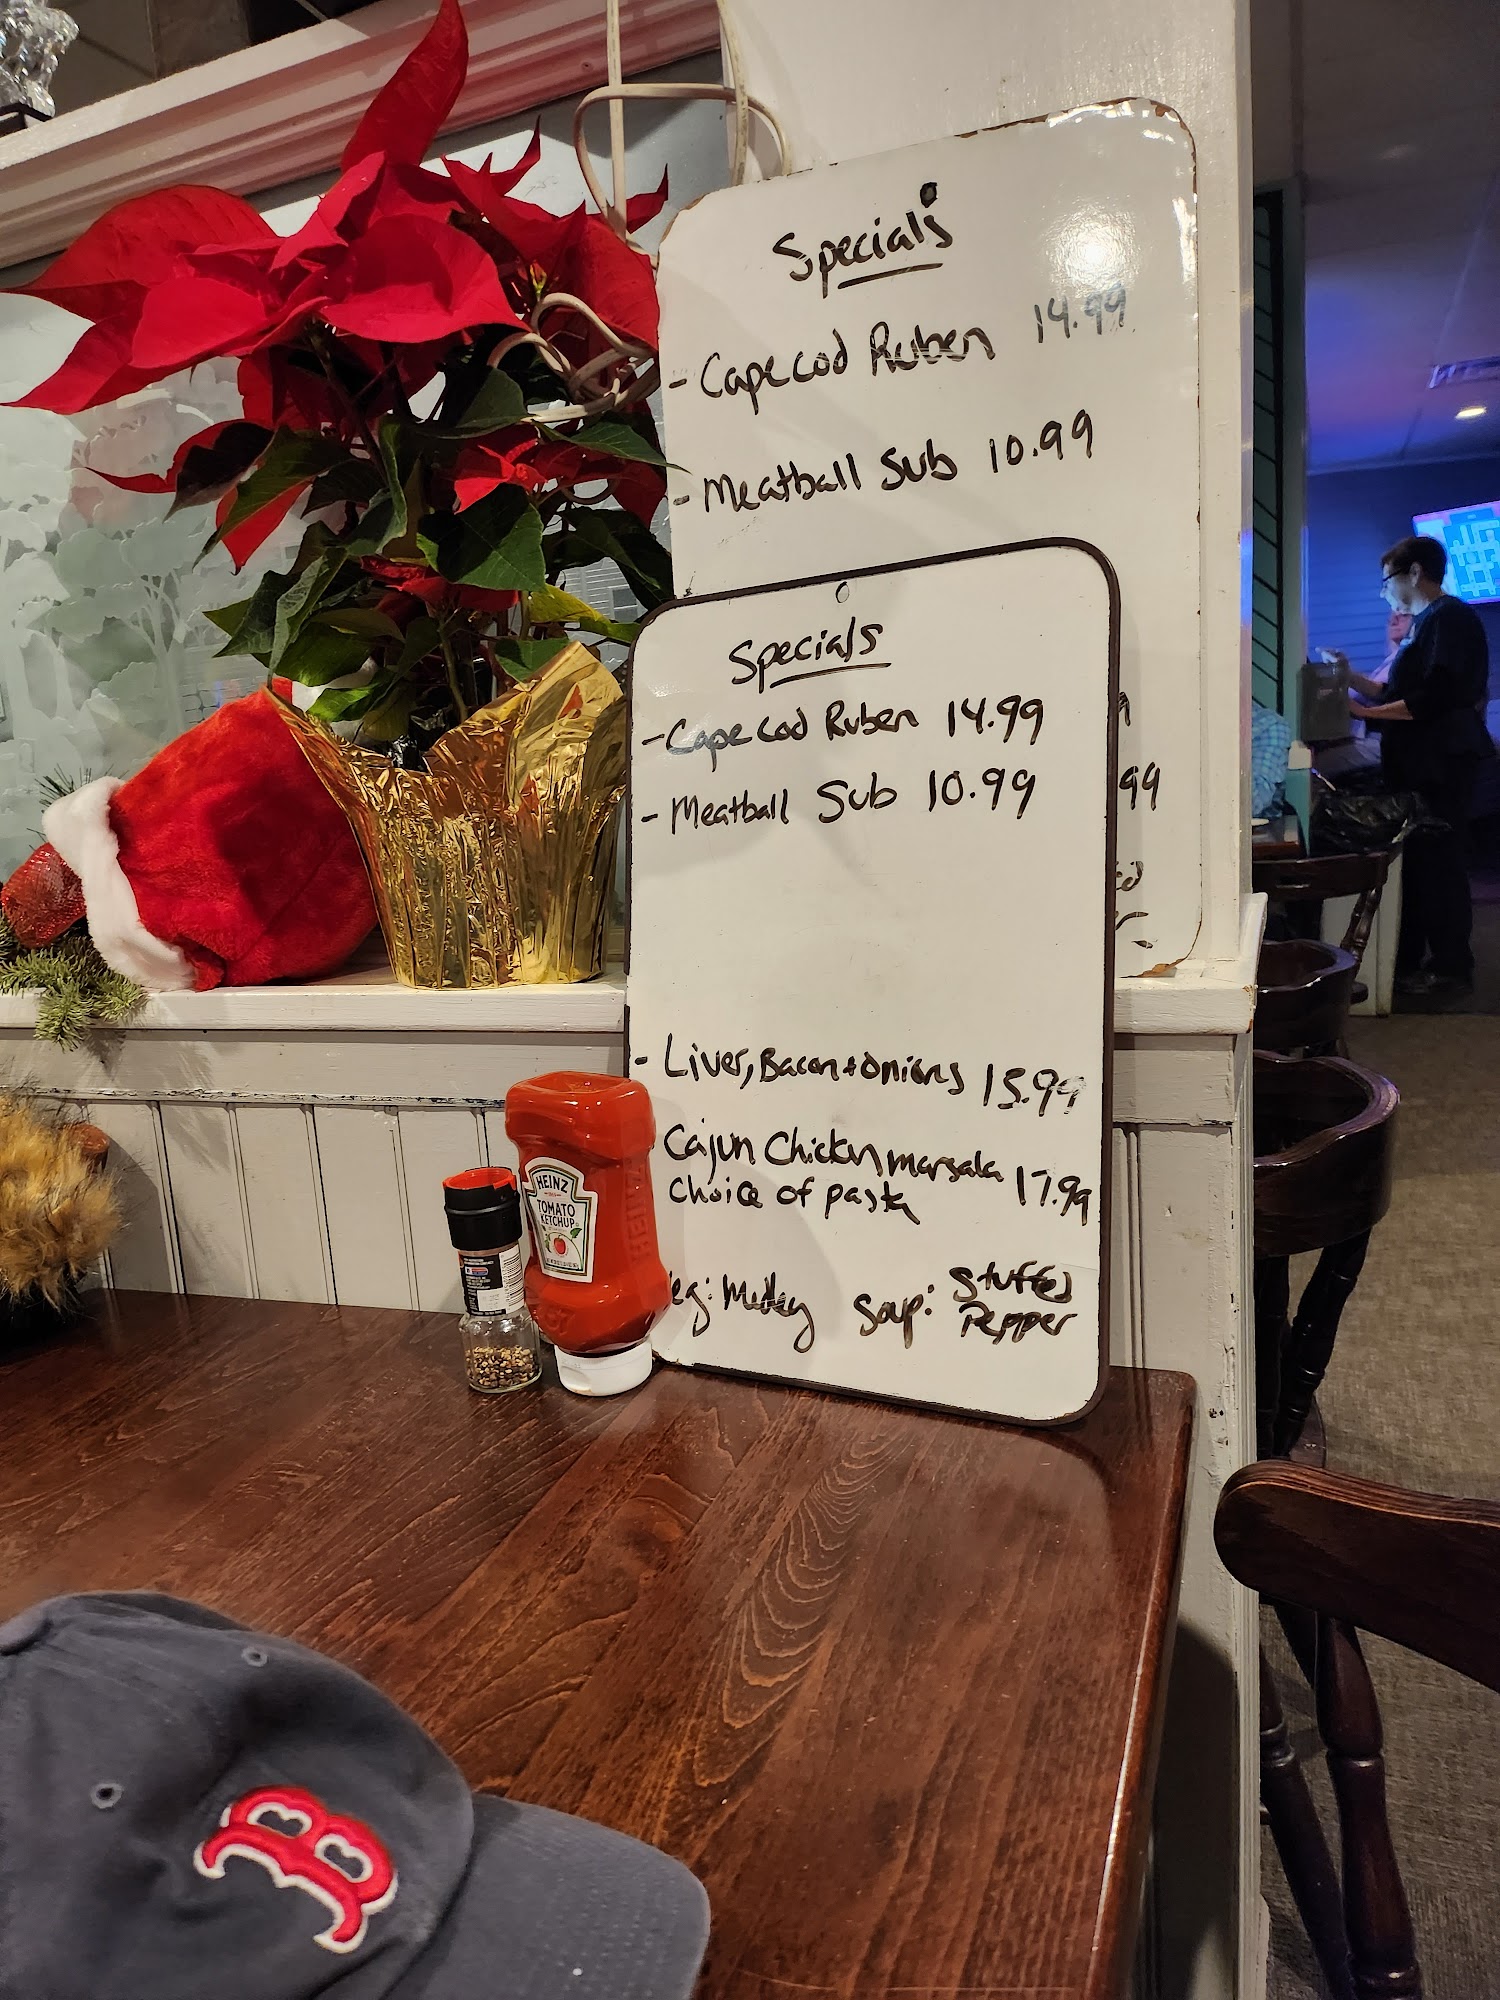 Specials
- Cape cod Ruben 14.99
- Meatball Sub 10.99
99
Specials
- Cape cod Ruben 14.99
- Meatball Sub 10.99
- Liver, Bacon + onions 15.99
Cajun Chicken marsala
Choice of pasta 17.99
eg: Medley Soup: Stuffed
Pepper
HEINZ
TOMATO
KETCHUP
HEINZ
B